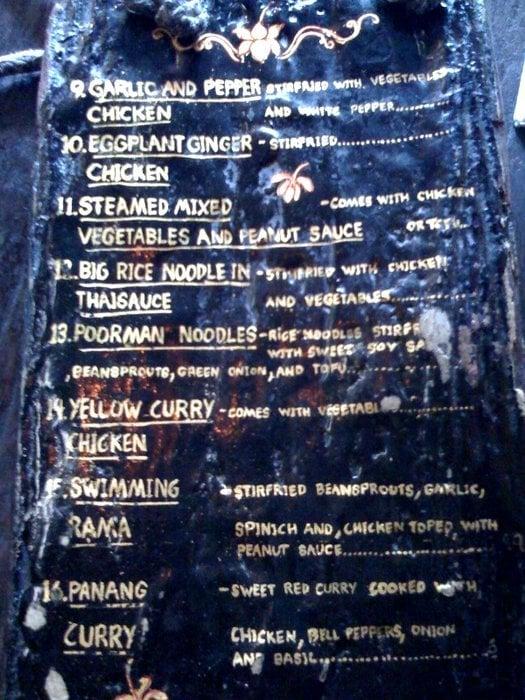 9. GARLIC AND PEPPER STIRFRIED WITH VEGETABLES
CHICKEN AND WHITE PEPPER..........
10. EGGPLANT GINGER - STIRFRIED....................
CHICKEN
11. STEAMED MIXED - COMES WITH CHICKEN
VEGETABLES AND PEANUT SAUCE OR
12. BIG RICE NOODLE IN - STIRFRIED WITH CHICKEN
THAISAUCE AND VEGETABLES..............
13. POORMAN NOODLES - RICE NOODLES
WITH SWEET SOY
, BEANSPROUTS, GREEN ONION, AND TOFU...
14. YELLOW CURRY - COMES WITH
CHICKEN
15. SWIMMING - STIRFRIED BEANSPROUTS, GARLIC,
RAMA SPINICH AND, CHICKEN TOPED WITH
PEANUT SAUCE........................
16. PANANG - SWEET RED CURRY COOKED WITH
CURRY CHICKEN, BELL PEPPERS, ONION
AND BASIL...........................